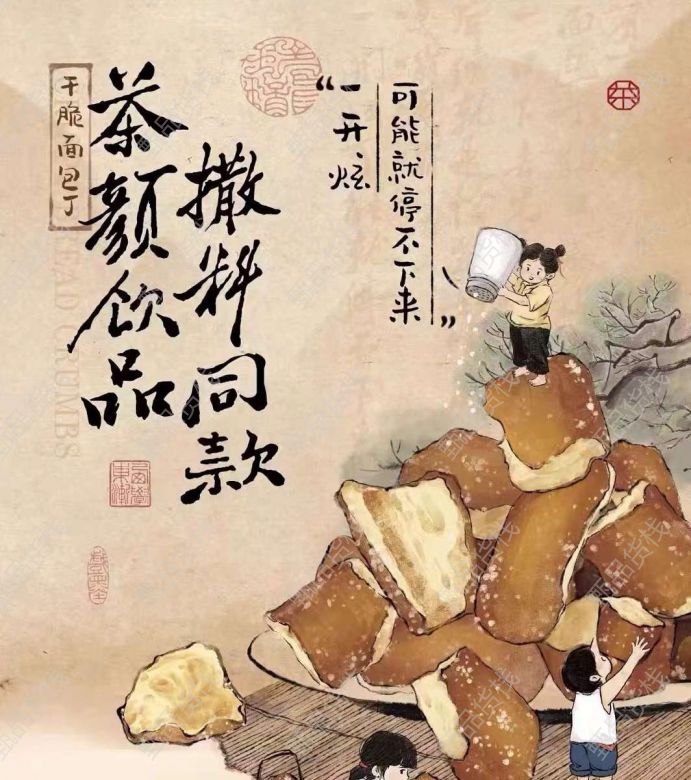 干脆面包丁
茶颜饮品
撒料同款
“一开炫
可能就停不下来”
EAD CRUMBS
甄品货栈